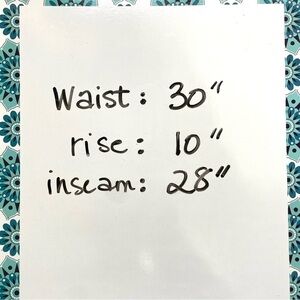 Waist: 30"
rise: 10"
inseam: 28"